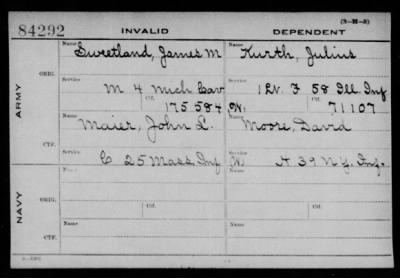 (3-H-3)
84292 INVALID DEPENDENT
Name Name
Sweetland, James M Kurth, Julius
ORIG.
Service Service
M 4 Mich Cav 1 Lt. F 58 Ill. Inf
Ctf. Ctf.
175584 W. 71107
ARMY
Name Name
Maier, John L. Moore, David
CTF.
Service Service
C 25 Mass. Inf W. H 39 N.Y. Inf.
Name Name
ORIG.
Ctf. Ctf.
NAVY
Name Name
CTF.